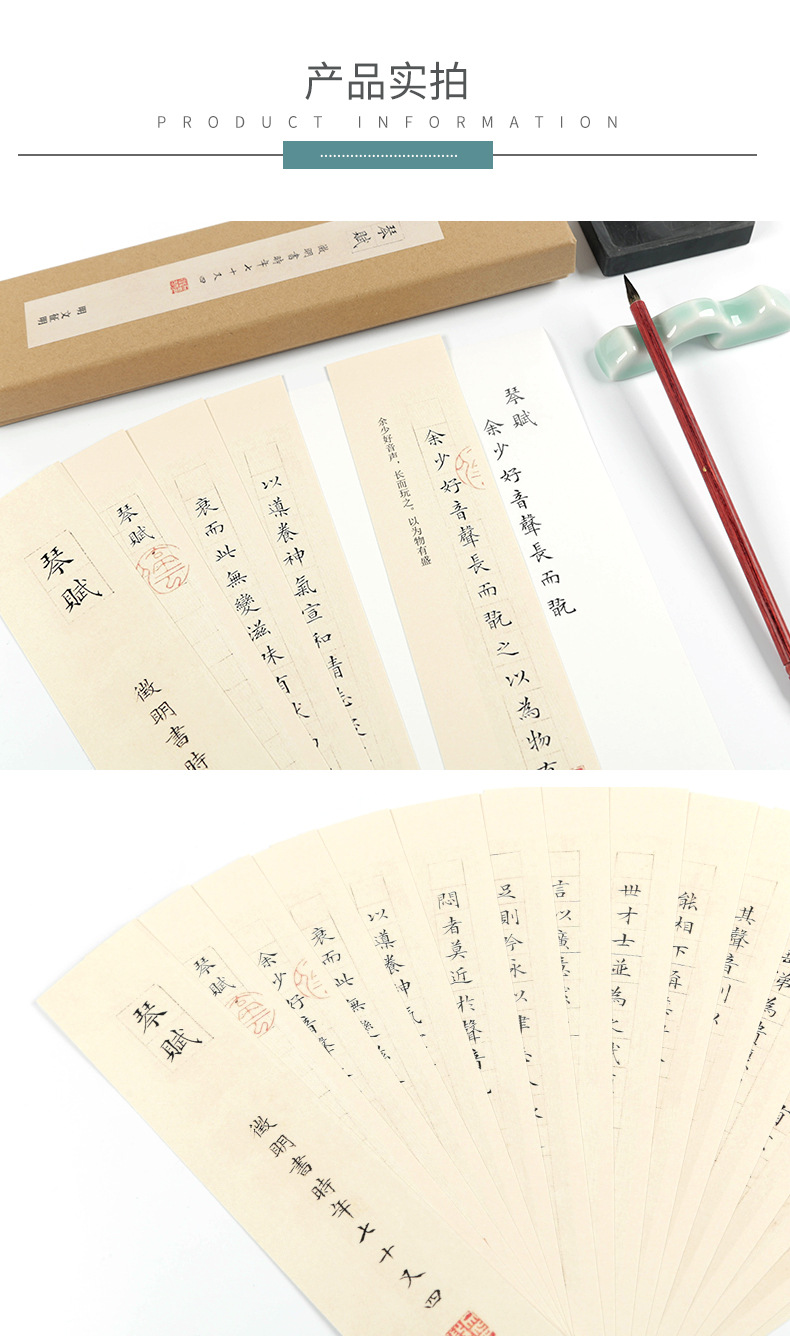 产品实拍
PRODUCT INFORMATION
琴賦
徵明書時年七十又四
明 文徵明
琴賦
徵明書時
琴賦
衰而此無變滋味有
以導養神氣宣和情志
余少好音声，长而玩之。以为物有盛
余少好音聲長而翫之以為物有
琴賦
余少好音聲長而翫
琴賦
徵明書時年七十又四
琴賦
余少好音聲
衰而此無變
以導養神氣
悶者莫近於聲音
足則吟詠以肆志
言以廣意
世才士並為之賦
然相下有
其聲音則以